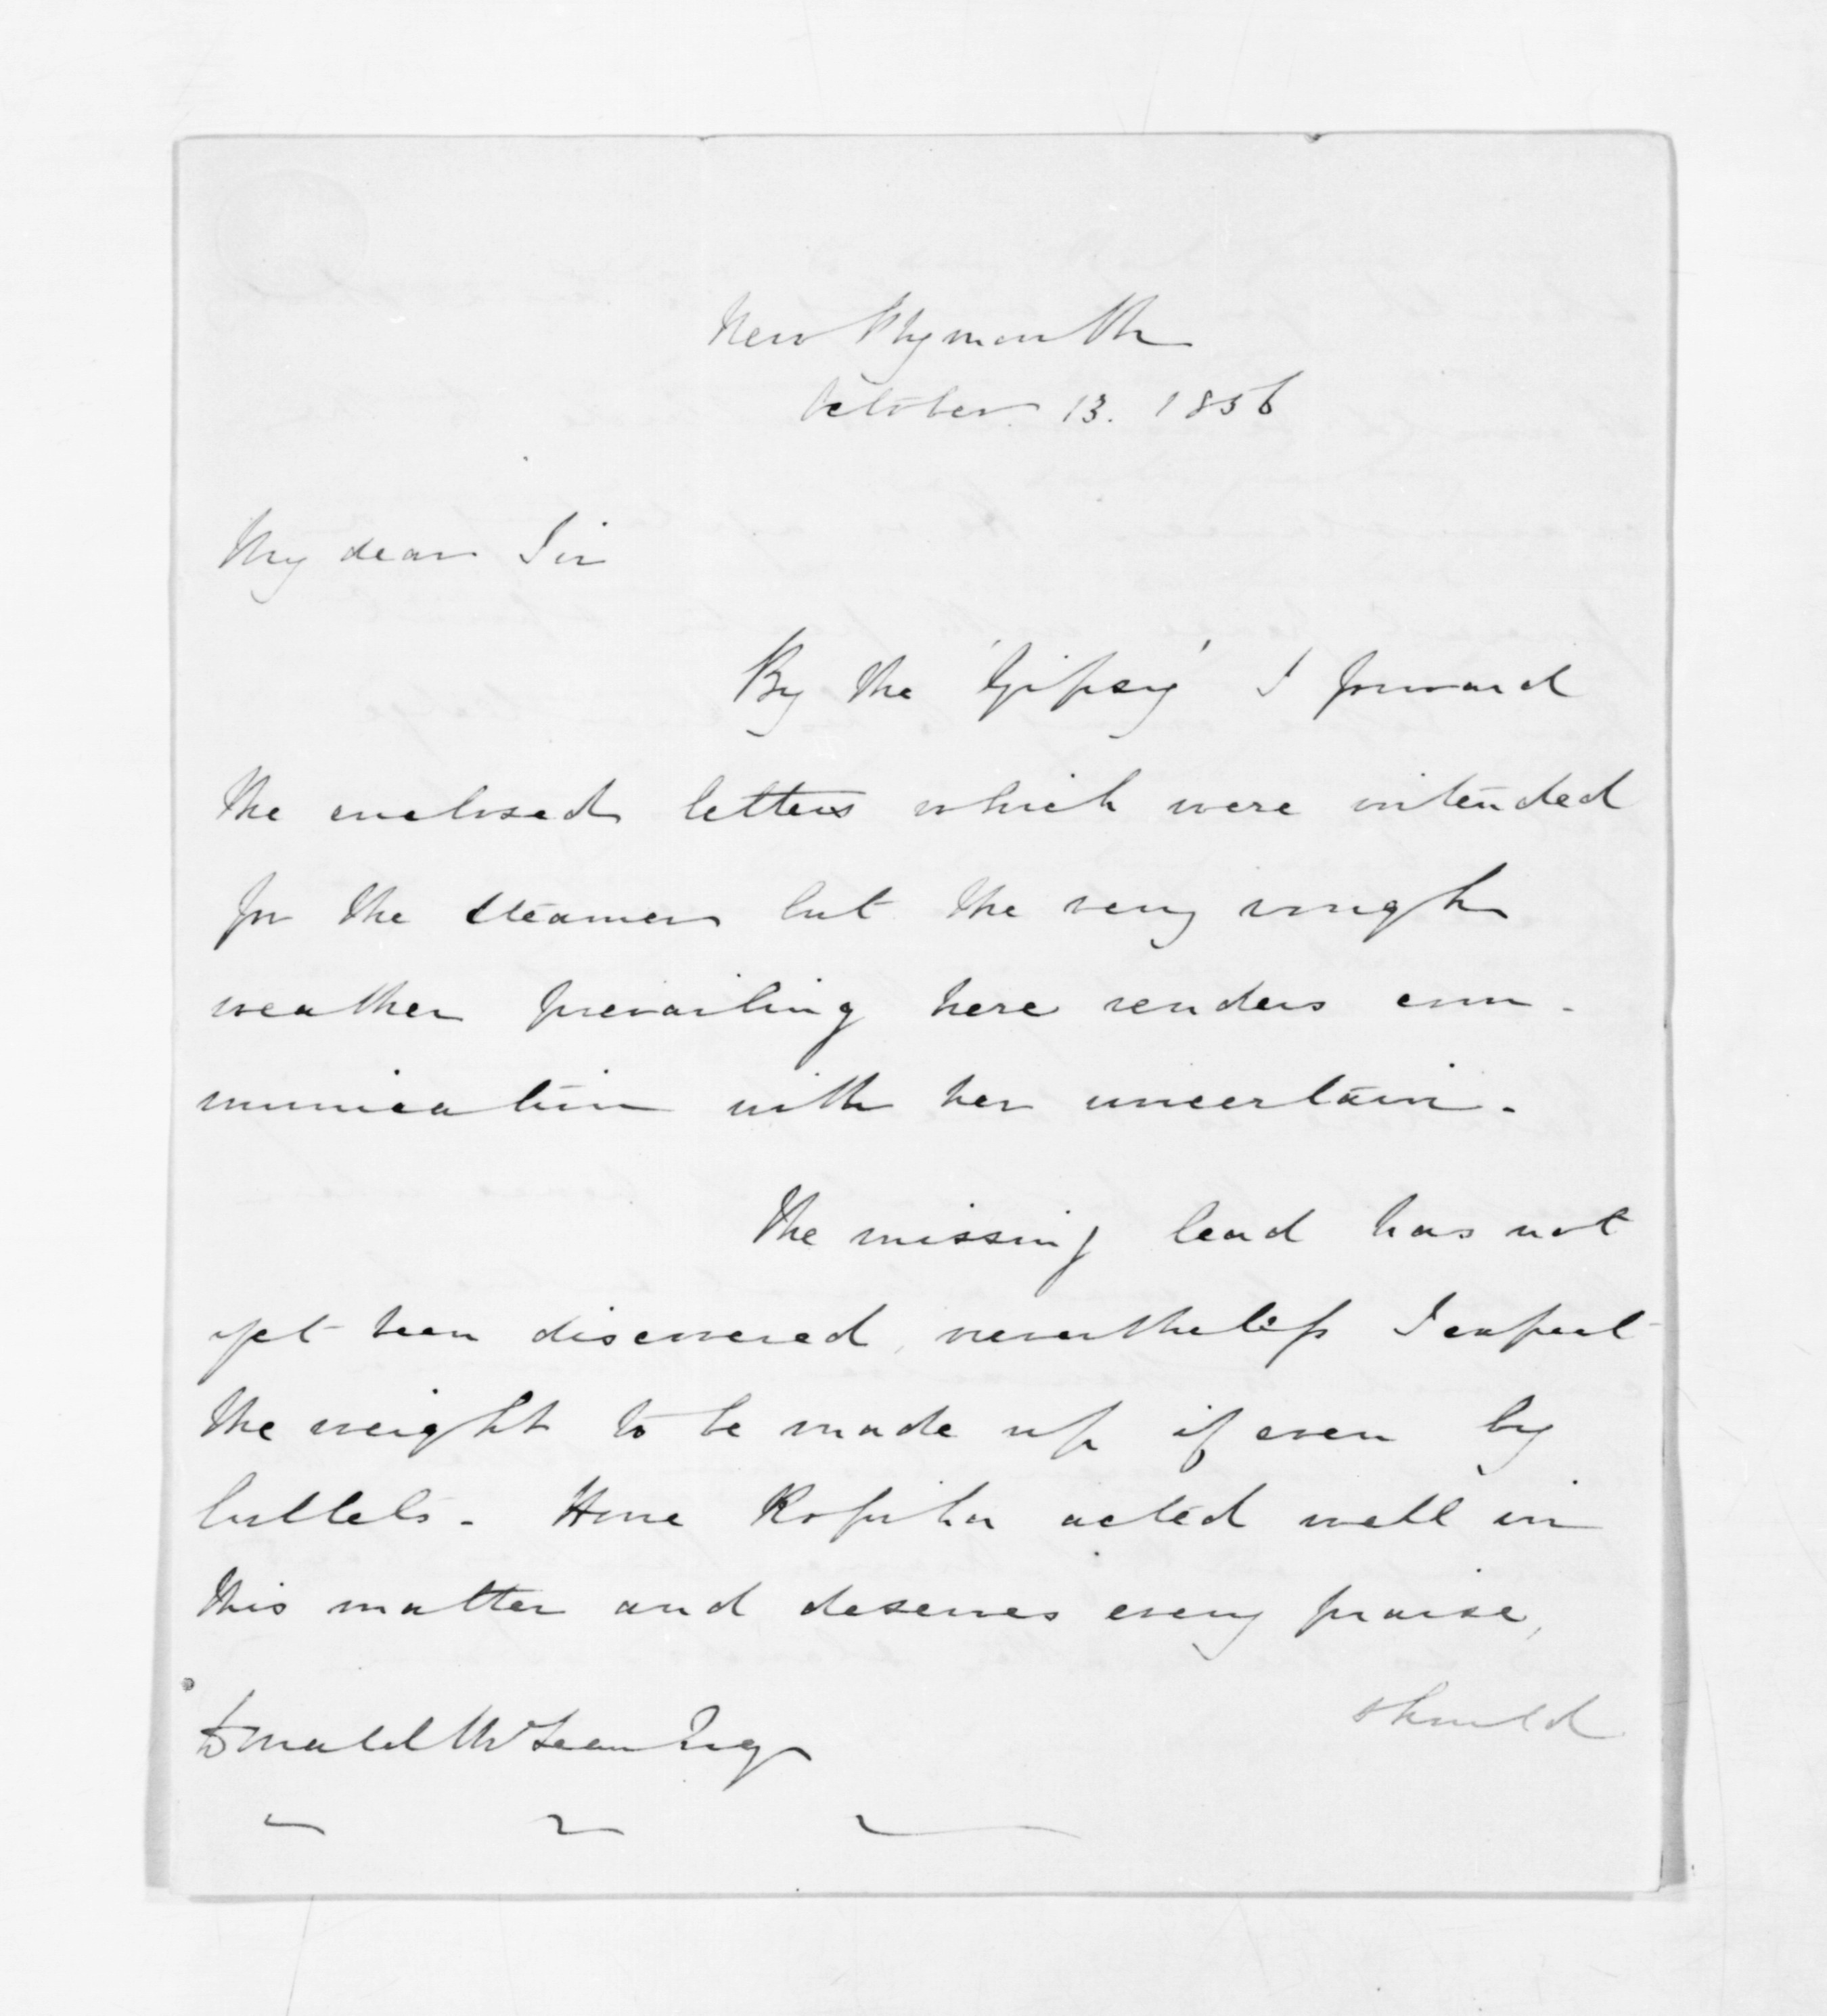 New Plymouth
October 13. 1856
My dear Sir
By the 'Gipsey' I forward
the enclosed letters which were intended
for the steamer but the very rough
weather prevailing here renders com-
munication with her uncertain.
The missing lead has not
yet been discovered, nevertheless I expect
the weight to be made up if even by
bullets. Hone Ropiha acted well in
this matter and deserves every praise,
should
Donald McLean Esq